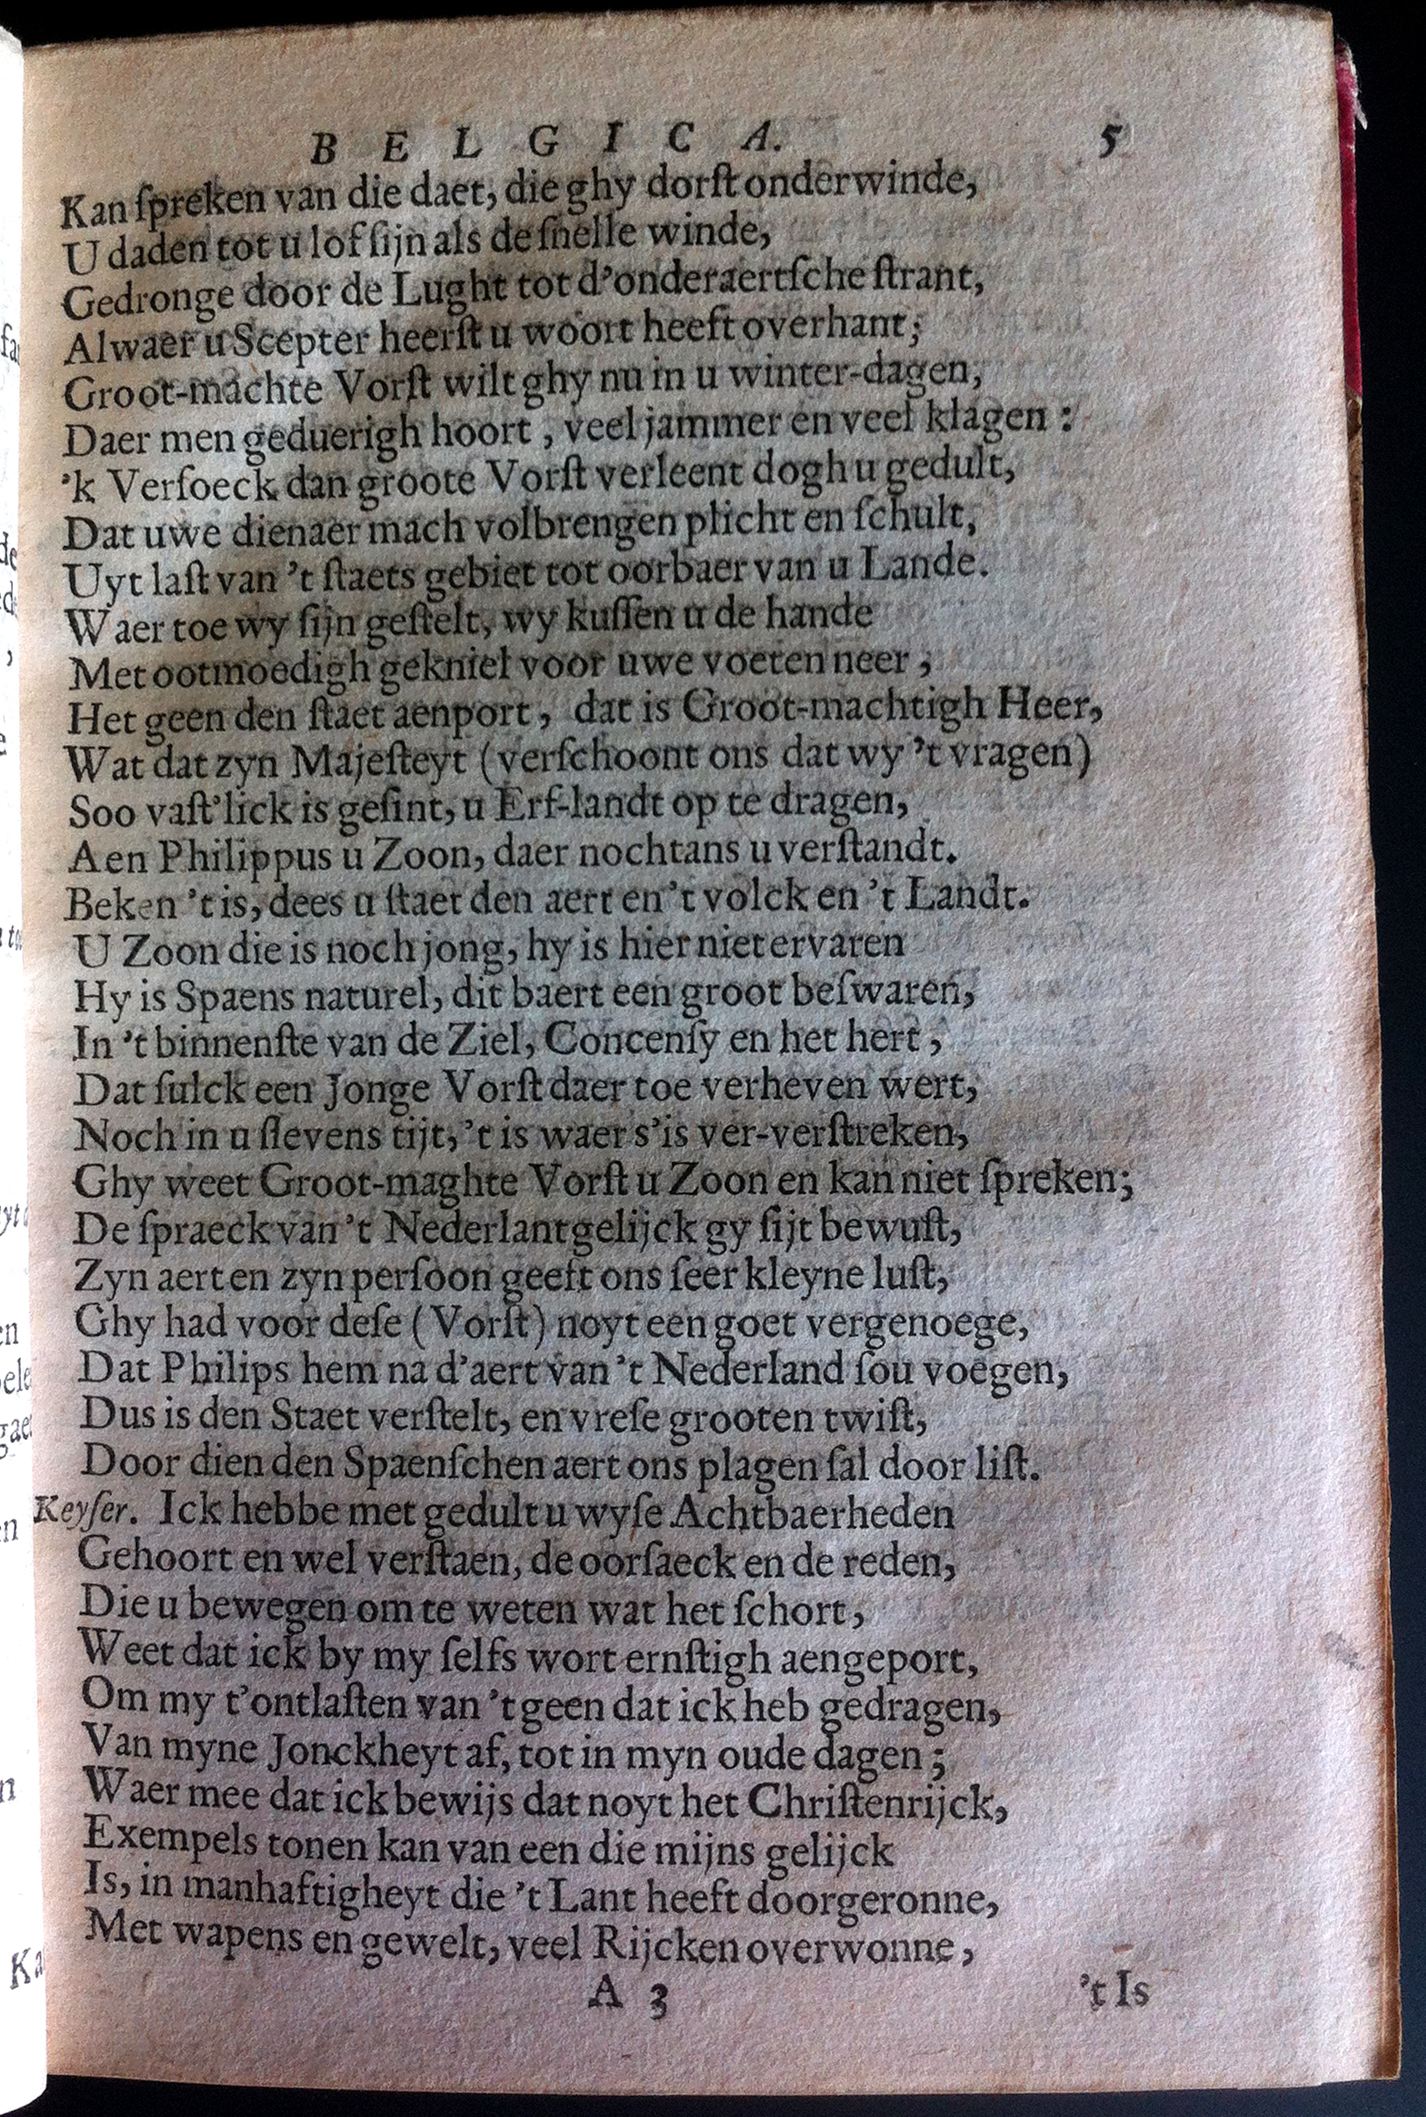 BELGICA. 5
Kan ſpreken van die daet, die ghy dorſt onderwinde,
U daden tot u lof ſijn als de ſnelle winde,
Gedronge door de Lught tot d'onderaertſche ſtrant,
Alwaer u Scepter heerſt u woort heeft overhant;
Groot-machte Vorſt wilt ghy nu in u winter-dagen,
Daer men geduerigh hoort, veel jammer en veel klagen:
'k Verſoeck dan groote Vorſt verleent dogh u gedult,
Dat uwe dienaer mach volbrengen plicht en ſchult,
Uyt laſt van 't ſtaets gebiet tot oorbaer van u Lande.
Waer toe wy ſijn geſtelt, wy kuſſen u de hande
Met ootmoedigh gekniel voor uwe voeten neer,
Het geen den ſtaet aenport, dat is Groot-machtigh Heer,
Wat dat zyn Majeſteyt (verſchoont ons dat wy 't vragen)
Soo vaſt'lick is geſint, u Erf-landt op te dragen,
Aen Philippus u Zoon, daer nochtans u verſtandt.
Beken 't is, dees u ſtaet den aert en 't volck en 't Landt.
U Zoon die is noch jong, hy is hier niet ervaren
Hy is Spaens naturel, dit baert een groot beſwaren,
In 't binnenſte van de Ziel, Concenſy en het hert,
Dat ſulck een Jonge Vorſt daer toe verheven wert,
Noch in u ſlevens tijt, 't is waer s'is ver-verſtreken,
Ghy weet Groot-maghte Vorſt u Zoon en kan niet ſpreken;
De ſpraeck van 't Nederlant gelijck gy ſijt bewuſt,
Zyn aert en zyn perſoon geeft ons ſeer kleyne luſt,
Ghy had voor deſe (Vorſt) noyt een goet vergenoege,
Dat Philips hem na d'aert van 't Nederland ſou voegen,
Dus is den Staet verſtelt, en vreſe grooten twiſt,
Door dien den Spaenſchen aert ons plagen ſal door liſt.
Keyſer. Ick hebbe met gedult u wyſe Achtbaerheden
Gehoort en wel verſtaen, de oorſaeck en de reden,
Die u bewegen om te weten wat het ſchort,
Weet dat ick by my ſelfs wort ernſtigh aengeport,
Om my t'ontlaſten van 't geen dat ick heb gedragen,
Van myne Jonckheyt af, tot in myn oude dagen;
Waer mee dat ick bewijs dat noyt het Chriſtenrijck,
Exempels tonen kan van een die mijns gelijck
Is, in manhaftigheyt die 't Lant heeft doorgeronne,
Met wapens en gewelt, veel Rijcken overwonne,
A 3 't Is